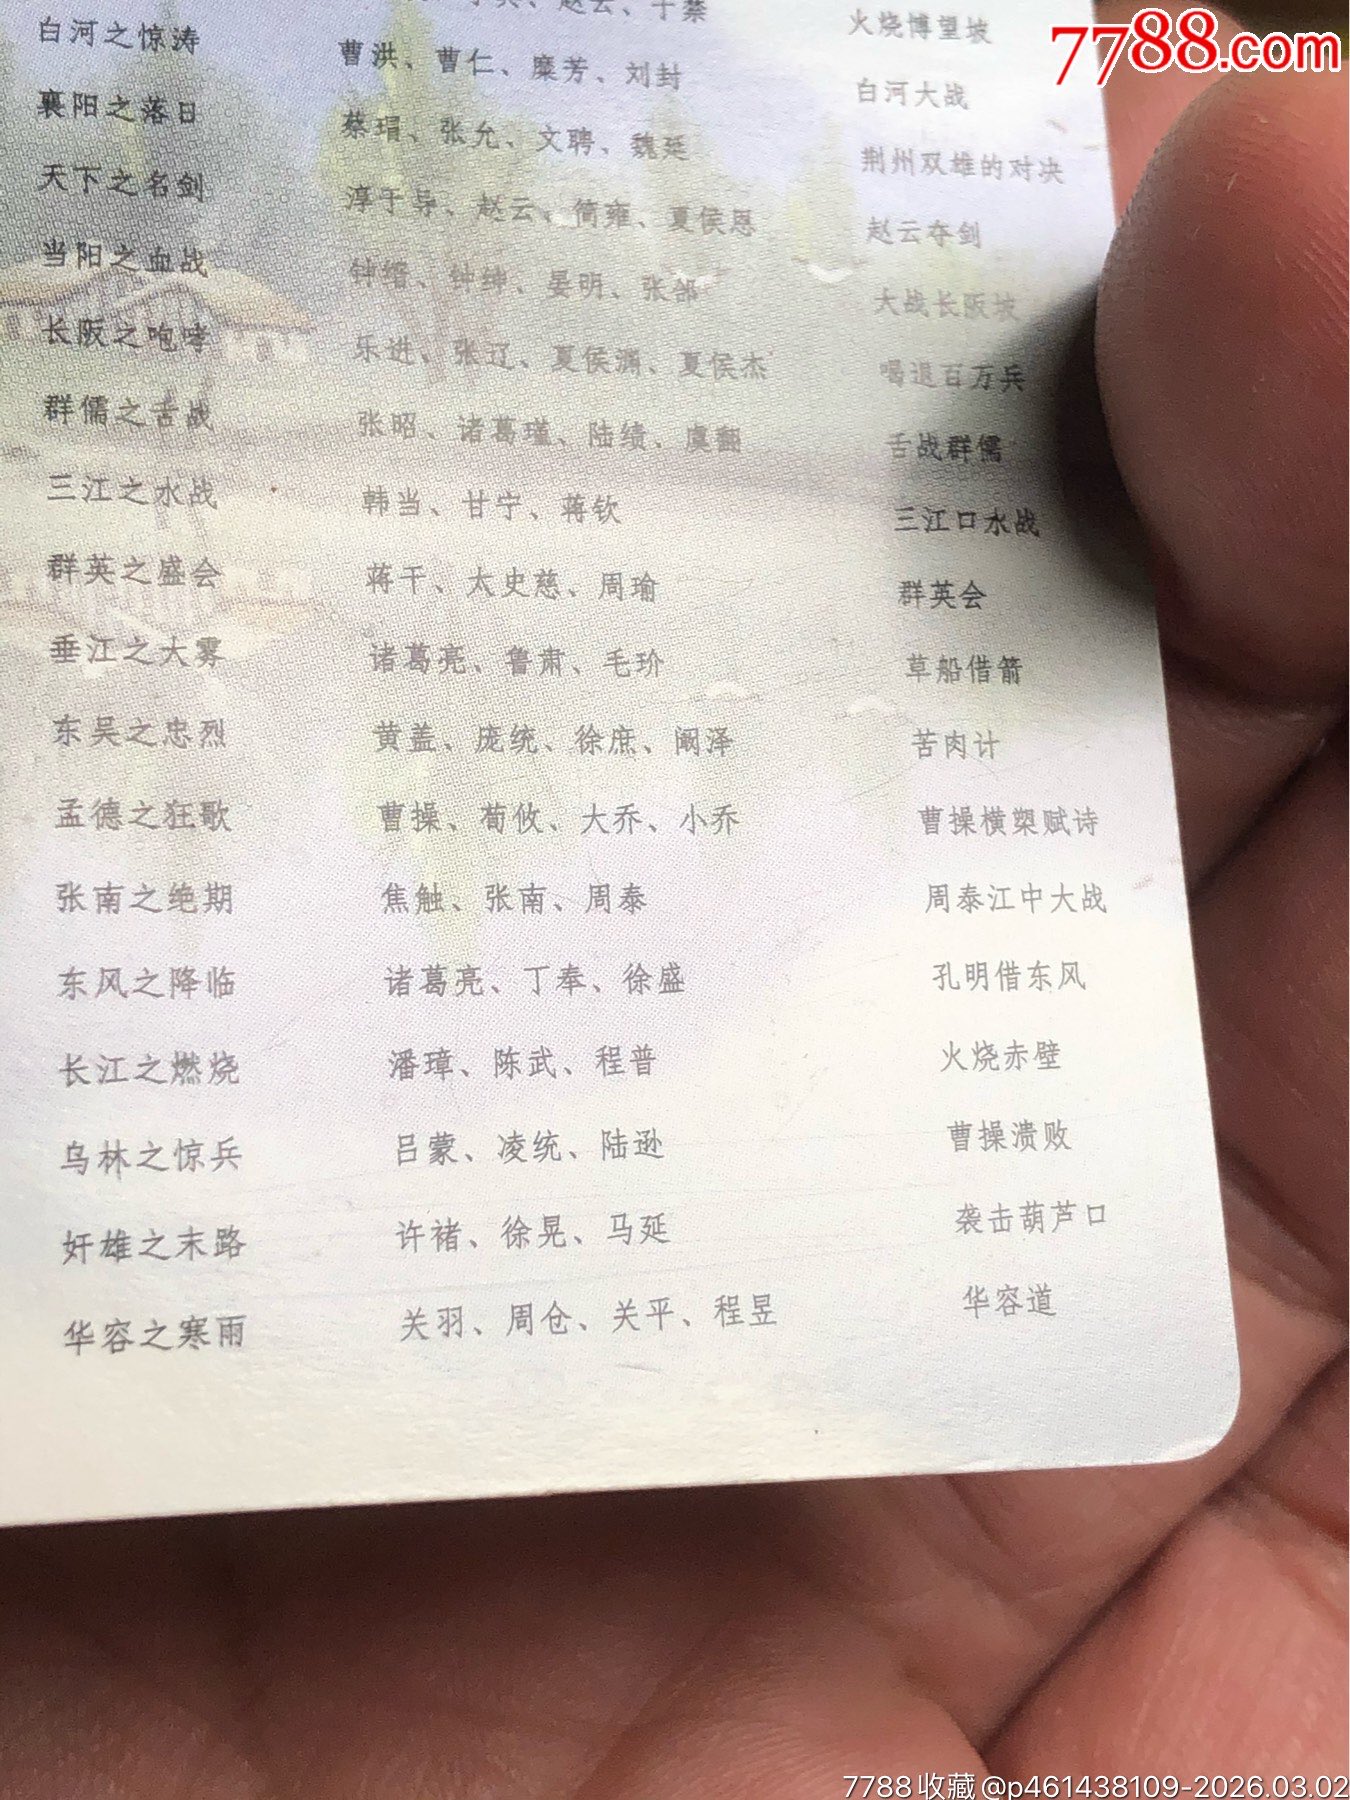 7788.com
赵云、于禁
火烧博望坡
白河之惊涛 曹洪、曹仁、糜芳、刘封 白河大战
襄阳之落日 蔡瑁、张允、文聘、魏延 荆州双雄的对决
天下之名剑 淳于导、赵云、简雍、夏侯恩 赵云夺剑
当阳之血战 钟缙、钟绅、晏明、张郃 大战长阪坡
长阪之咆哮 乐进、张辽、夏侯渊、夏侯杰 喝退百万兵
群儒之舌战 张昭、诸葛瑾、陆绩、虞翻 舌战群儒
三江之水战 韩当、甘宁、蒋钦 三江口水战
群英之盛会 蒋干、太史慈、周瑜 群英会
垂江之大雾 诸葛亮、鲁肃、毛玠 草船借箭
东吴之忠烈 黄盖、庞统、徐庶、阚泽 苦肉计
孟德之狂歌 曹操、荀攸、大乔、小乔 曹操横槊赋诗
张南之绝期 焦触、张南、周泰 周泰江中大战
东风之降临 诸葛亮、丁奉、徐盛 孔明借东风
长江之燃烧 潘璋、陈武、程普 火烧赤壁
乌林之惊兵 吕蒙、凌统、陆逊 曹操溃败
奸雄之末路 许褚、徐晃、马延 袭击葫芦口
华容之寒雨 关羽、周仓、关平、程昱 华容道
7788收藏@p461438109-2026.03.02